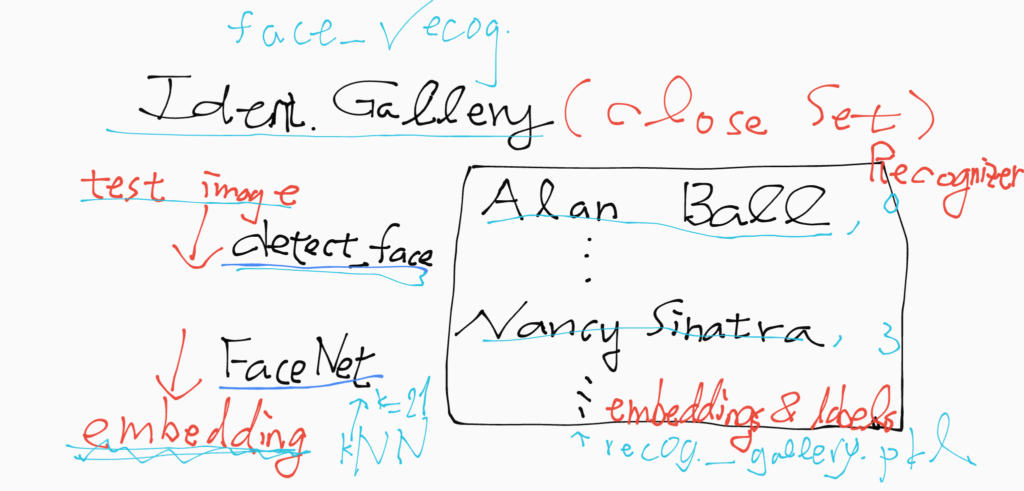 face_recog.
Ident. Gallery (Close Set)
Recognizer
test image
detect_face
FaceNet
k=21
kNN
embedding
Alan Ball, 0
⋮
Nancy Sinatra, 3
⋮
embeddings & labels
↑ recog._gallery.pkl